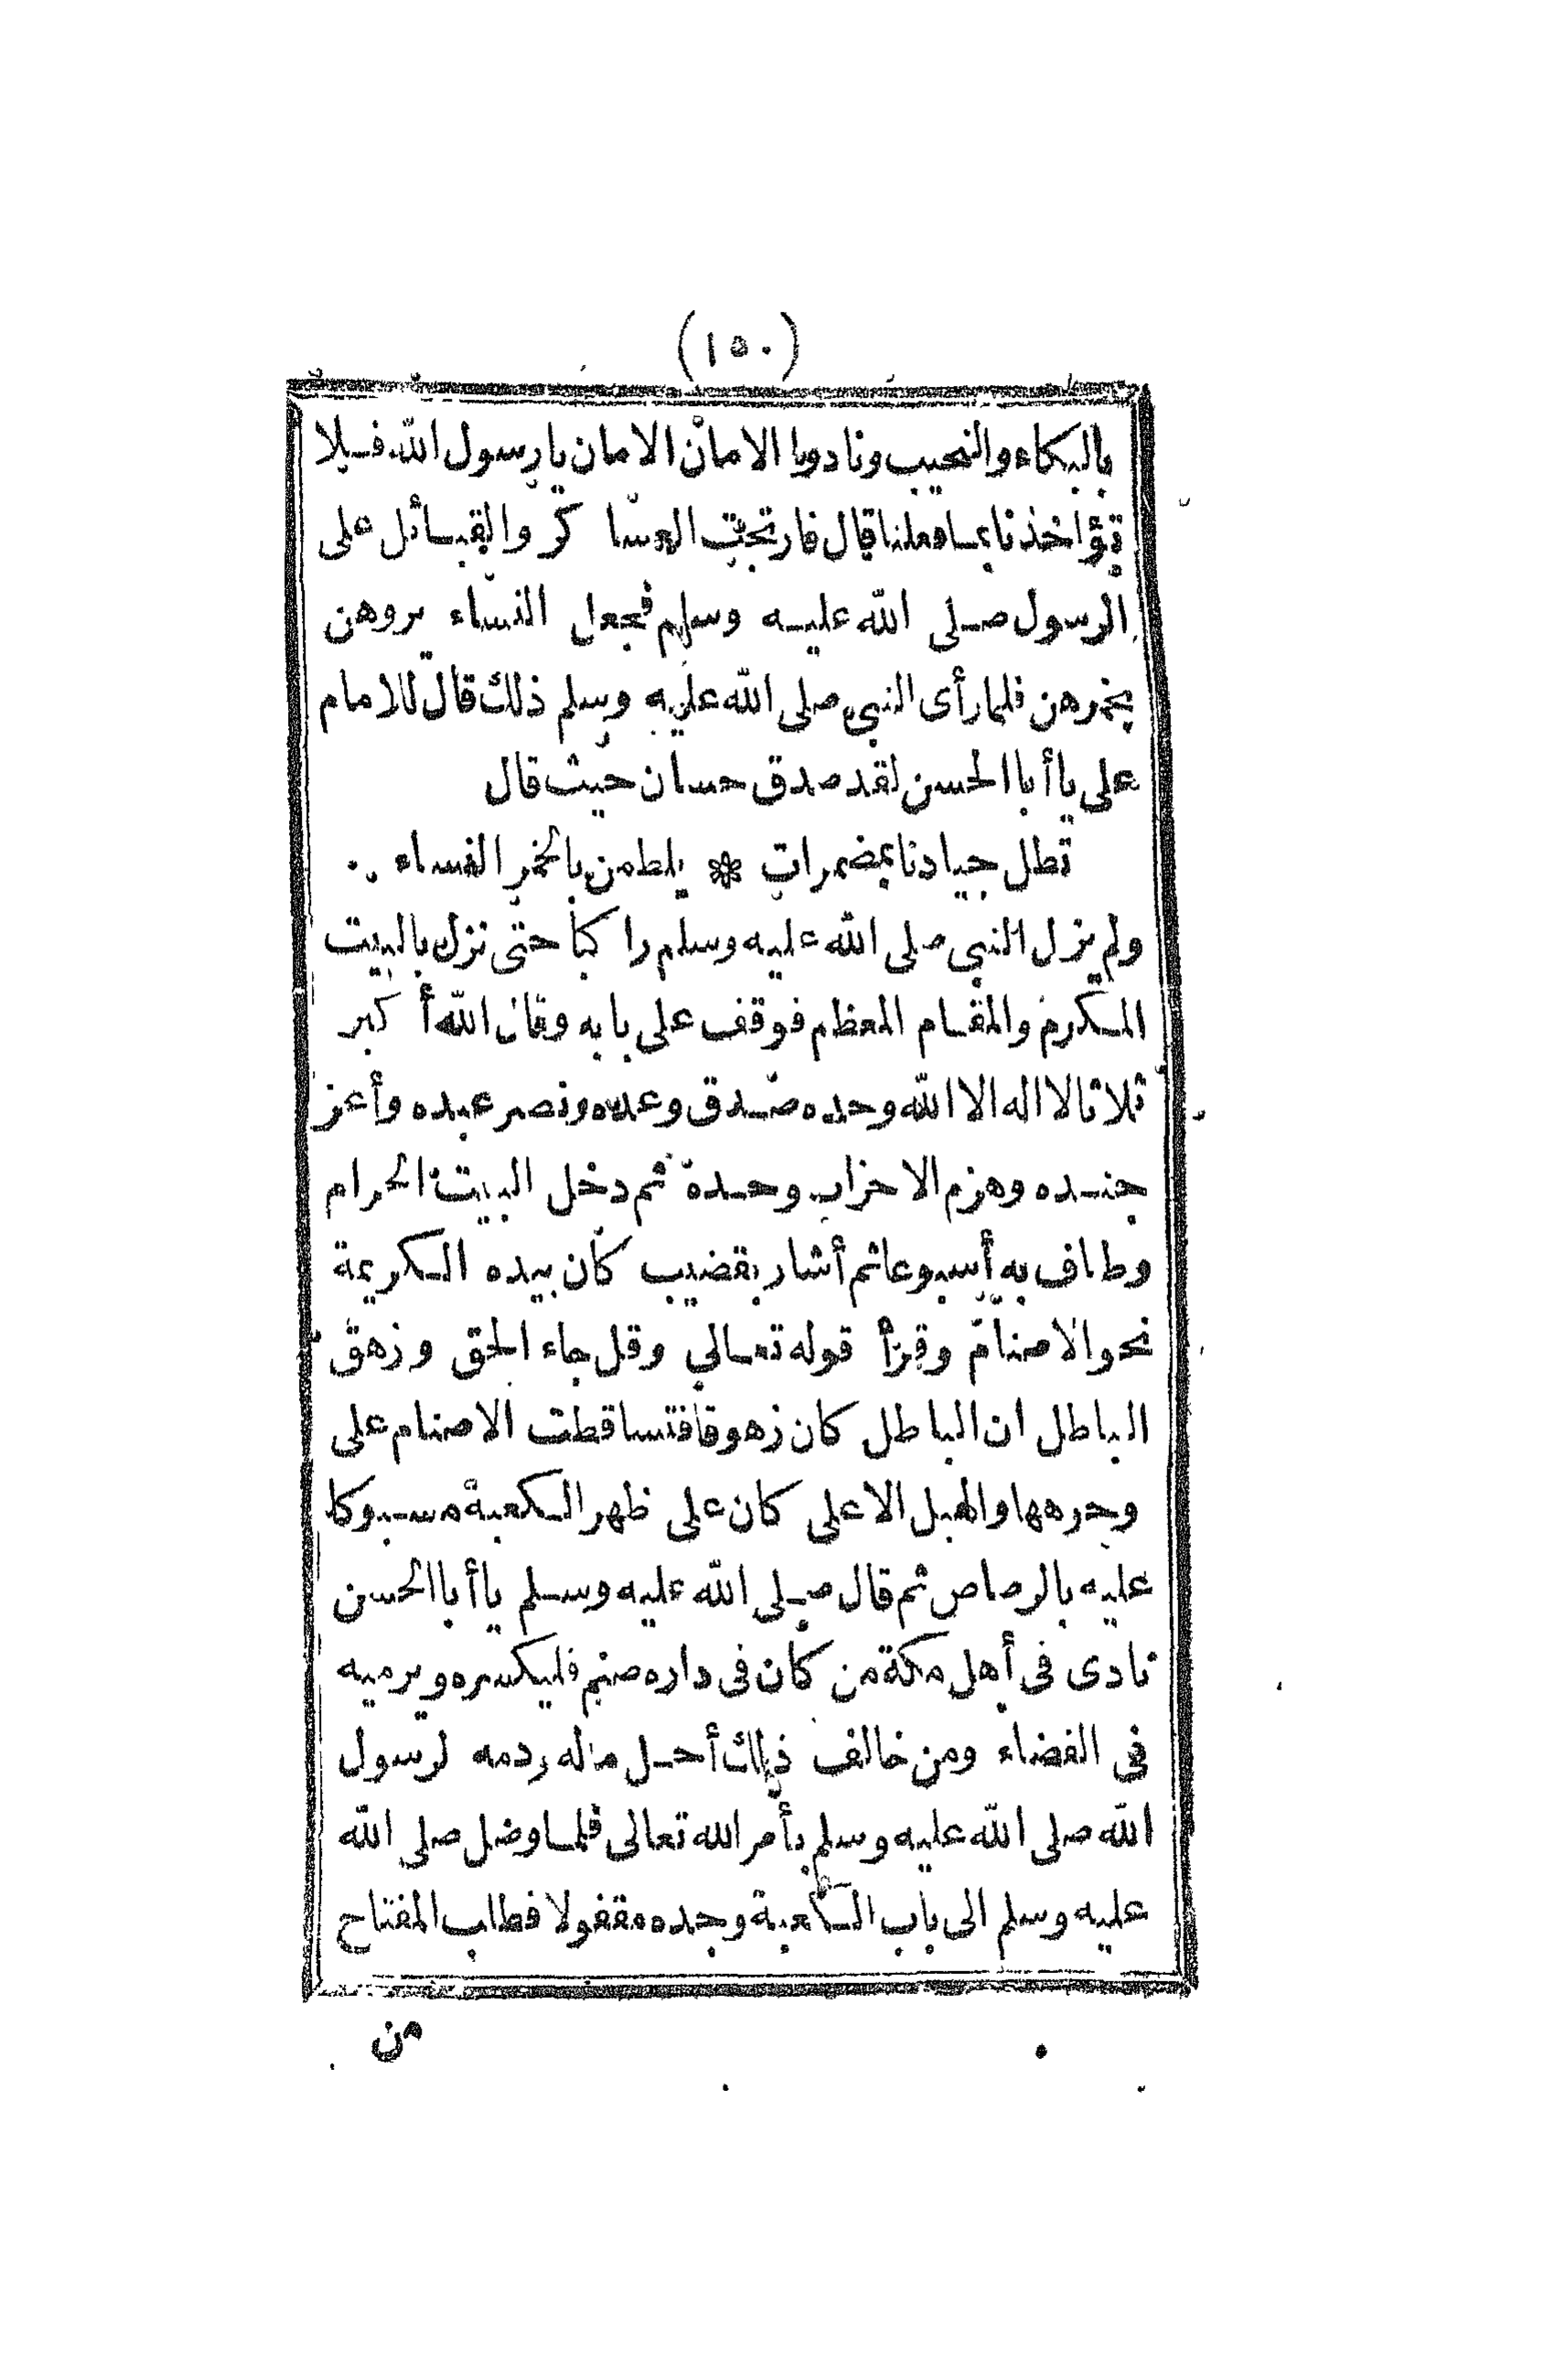 (١٥٠)
بالبكاء والنحيب ونادوا يا الامان الامان يا رسول الله فلا
تؤاخذنا بما فعلنا قال فارتجت العساكر والقبائل على
الرسول صلى الله عليه وسلم فجعل النساء يروهن
بخمرهن فلما رأى النبي صلى الله عليه وسلم ذلك قال للامام
على يا أبا الحسن لقد صدق حسان حيث قال
تظل جيادنا بمضمرات * يلطمن بالخمر النساء
ولم يزل النبي صلى الله عليه وسلم راكبا حتى نزل بالبيت
المكرم والمقام المعظم فوقف على بابه وقال الله أكبر
ثلاثا لا اله الا الله وحده صدق وعده ونصر عبده وأعز
جنده وهزم الاحزاب وحده ثم دخل البيت الحرام
وطاف به أسبوعا ثم أشار بقضيب كان بيده الكريمة
نحو الاصنام وقرأ قوله تعالي وقل جاء الحق وزهق
الباطل ان الباطل كان زهوقا فتساقطت الاصنام على
وجوهها والهبل الاعلى كان على ظهر الكعبة مسبوكا
عليه بالرصاص ثم قال صلى الله عليه وسلم يا أبا الحسن
نادى فى أهل مكة من كان فى داره صنم فليكسره ويرميه
في الفضاء ومن خالف ذلك أحل ماله ودمه لرسول
الله صلى الله عليه وسلم بأمر الله تعالى فلما وصل صلى الله
عليه وسلم الى باب الكعبة وجده مقفولا فطلب المفتاح
من